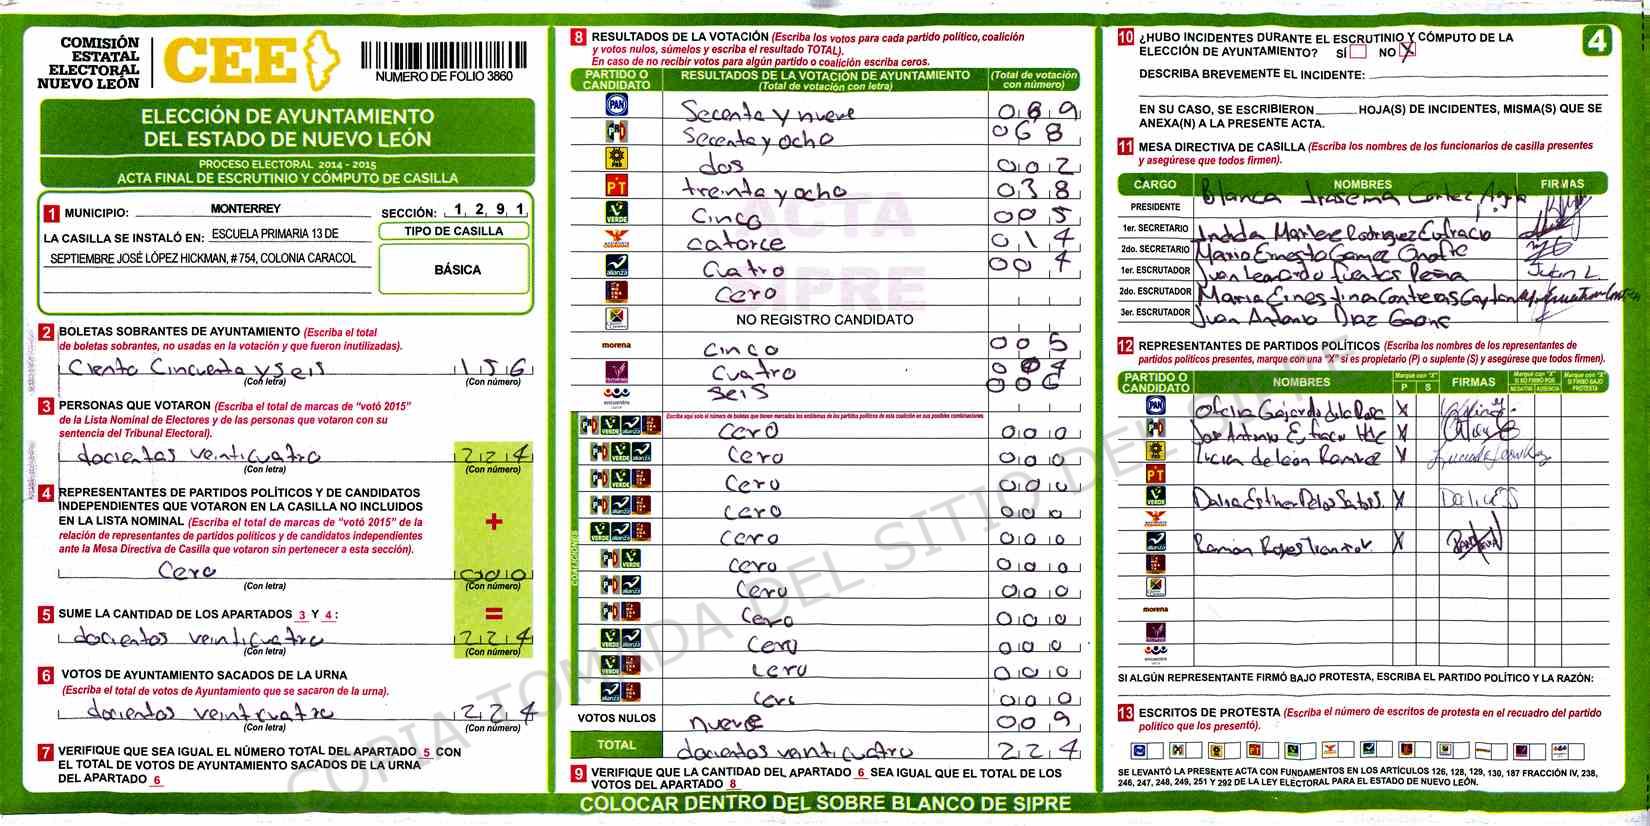 COMISIÓN
ESTATAL
ELECTORAL
NUEVO LEÓN
CEE
NUMERO DE FOLIO 3860
ELECCIÓN DE AYUNTAMIENTO
DEL ESTADO DE NUEVO LEÓN
PROCESO ELECTORAL 2014 - 2015
ACTA FINAL DE ESCRUTINIO Y CÓMPUTO DE CASILLA
1 MUNICIPIO: MONTERREY SECCIÓN: 1 2 9 1
LA CASILLA SE INSTALÓ EN: ESCUELA PRIMARIA 13 DE
SEPTIEMBRE JOSÉ LÓPEZ HICKMAN, # 754, COLONIA CARACOL
TIPO DE CASILLA
BÁSICA
2 BOLETAS SOBRANTES DE AYUNTAMIENTO (Escriba el total
de boletas sobrantes, no usadas en la votación y que fueron inutilizadas).
Ciento Cincuenta y seis 1 5 6
(Con letra) (Con número)
3 PERSONAS QUE VOTARON (Escriba el total de marcas de "votó 2015"
de la Lista Nominal de Electores y de las personas que votaron con su
sentencia del Tribunal Electoral).
docientas veinticuatro 2 2 4
(Con letra) (Con número)
4 REPRESENTANTES DE PARTIDOS POLÍTICOS Y DE CANDIDATOS
INDEPENDIENTES QUE VOTARON EN LA CASILLA NO INCLUIDOS
EN LA LISTA NOMINAL (Escriba el total de marcas de "votó 2015" de la
relación de representantes de partidos políticos y de candidatos independientes
ante la Mesa Directiva de Casilla que votaron sin pertenecer a esta sección).
+
Cero 0 0 0
(Con letra) (Con número)
5 SUME LA CANTIDAD DE LOS APARTADOS 3 Y 4 : =
docientos veinticuatro 2 2 4
(Con letra) (Con número)
6 VOTOS DE AYUNTAMIENTO SACADOS DE LA URNA
(Escriba el total de votos de Ayuntamiento que se sacaron de la urna).
docientos veinticuatro 2 2 4
(Con letra) (Con número)
7 VERIFIQUE QUE SEA IGUAL EL NÚMERO TOTAL DEL APARTADO 5 CON
EL TOTAL DE VOTOS DE AYUNTAMIENTO SACADOS DE LA URNA
DEL APARTADO 6
8 RESULTADOS DE LA VOTACIÓN (Escriba los votos para cada partido político, coalición
y votos nulos, súmelos y escriba el resultado TOTAL).
En caso de no recibir votos para algún partido o coalición escriba ceros.
PARTIDO O CANDIDATO RESULTADOS DE LA VOTACIÓN DE AYUNTAMIENTO (Total de votación con letra) (Total de votación con número)
PAN Secenta y nueve 0 6 9
PRI Secenta y ocho 0 6 8
PRD dos 0 0 2
PT treinta y ocho 0 3 8
VERDE Cinco 0 0 5
catorce 0 1 4
alianza Cuatro 0 0 4
Cero
NO REGISTRO CANDIDATO
morena Cinco 0 0 5
Cuatro 0 0 4
encuentro seis 0 0 6
Escriba aquí solo el número de boletas que tienen marcados los emblemas de los partidos políticos de esta coalición en sus posibles combinaciones.
COALICIONES
PRI VERDE alianza cero 0 0 0
PRI VERDE alianza Cero 0 0 0
PRI VERDE Cero 0 0 0
PRI alianza cero 0 0 0
VERDE alianza cero 0 0 0
PRI VERDE cero 0 0 0
PRI alianza Cero 0 0 0
PRI Cero 0 0 0
VERDE alianza Cero 0 0 0
VERDE Cero 0 0 0
alianza Cero 0 0 0
VOTOS NULOS nueve 0 0 9
TOTAL docientos veinticuatro 2 2 4
9 VERIFIQUE QUE LA CANTIDAD DEL APARTADO 6 SEA IGUAL QUE EL TOTAL DE LOS
VOTOS DEL APARTADO 8
ACTA
SIPRE
COPIA TOMADA DEL SITIO DEL SIPRE
COLOCAR DENTRO DEL SOBRE BLANCO DE SIPRE
10 ¿HUBO INCIDENTES DURANTE EL ESCRUTINIO Y CÓMPUTO DE LA
ELECCIÓN DE AYUNTAMIENTO? SÍ NO X
4
DESCRIBA BREVEMENTE EL INCIDENTE:
EN SU CASO, SE ESCRIBIERON HOJA(S) DE INCIDENTES, MISMA(S) QUE SE
ANEXA(N) A LA PRESENTE ACTA.
11 MESA DIRECTIVA DE CASILLA (Escriba los nombres de los funcionarios de casilla presentes
y asegúrese que todos firmen).
CARGO NOMBRES FIRMAS
PRESIDENTE Blanca Irasema Cortez
1er. SECRETARIO Marlee Rodriguez Eufracio
2do. SECRETARIO Mario Ernesto Gamez Onofre
1er. ESCRUTADOR Juan Leonardo Fuentes Peña Juan L.
2do. ESCRUTADOR Maria Ernestina Contreras Gaytan
3er. ESCRUTADOR Juan Antonio Diaz Gaona
12 REPRESENTANTES DE PARTIDOS POLÍTICOS (Escriba los nombres de los representantes de
partidos políticos presentes, marque con una "X" si es propietario (P) o suplente (S) y asegúrese que todos firmen).
PARTIDO O CANDIDATO NOMBRES Marque con "X" P S FIRMAS Marque con "X" SI NO FIRMÓ POR NEGATIVA AUSENCIA Marque con "X" SI FIRMÓ BAJO PROTESTA
PAN Ofelia Gajardo de la Rosa X
PRI Jose Antonio X
PRD Lucia de León Ramirez X
PT
VERDE Dalia Esther X
alianza Ramón X
morena
encuentro
SI ALGÚN REPRESENTANTE FIRMÓ BAJO PROTESTA, ESCRIBA EL PARTIDO POLÍTICO Y LA RAZÓN:
13 ESCRITOS DE PROTESTA (Escriba el número de escritos de protesta en el recuadro del partido
político que los presentó).
SE LEVANTÓ LA PRESENTE ACTA CON FUNDAMENTOS EN LOS ARTÍCULOS 126, 128, 129, 130, 187 FRACCIÓN IV, 238,
246, 247, 248, 249, 251 Y 292 DE LA LEY ELECTORAL PARA EL ESTADO DE NUEVO LEÓN.